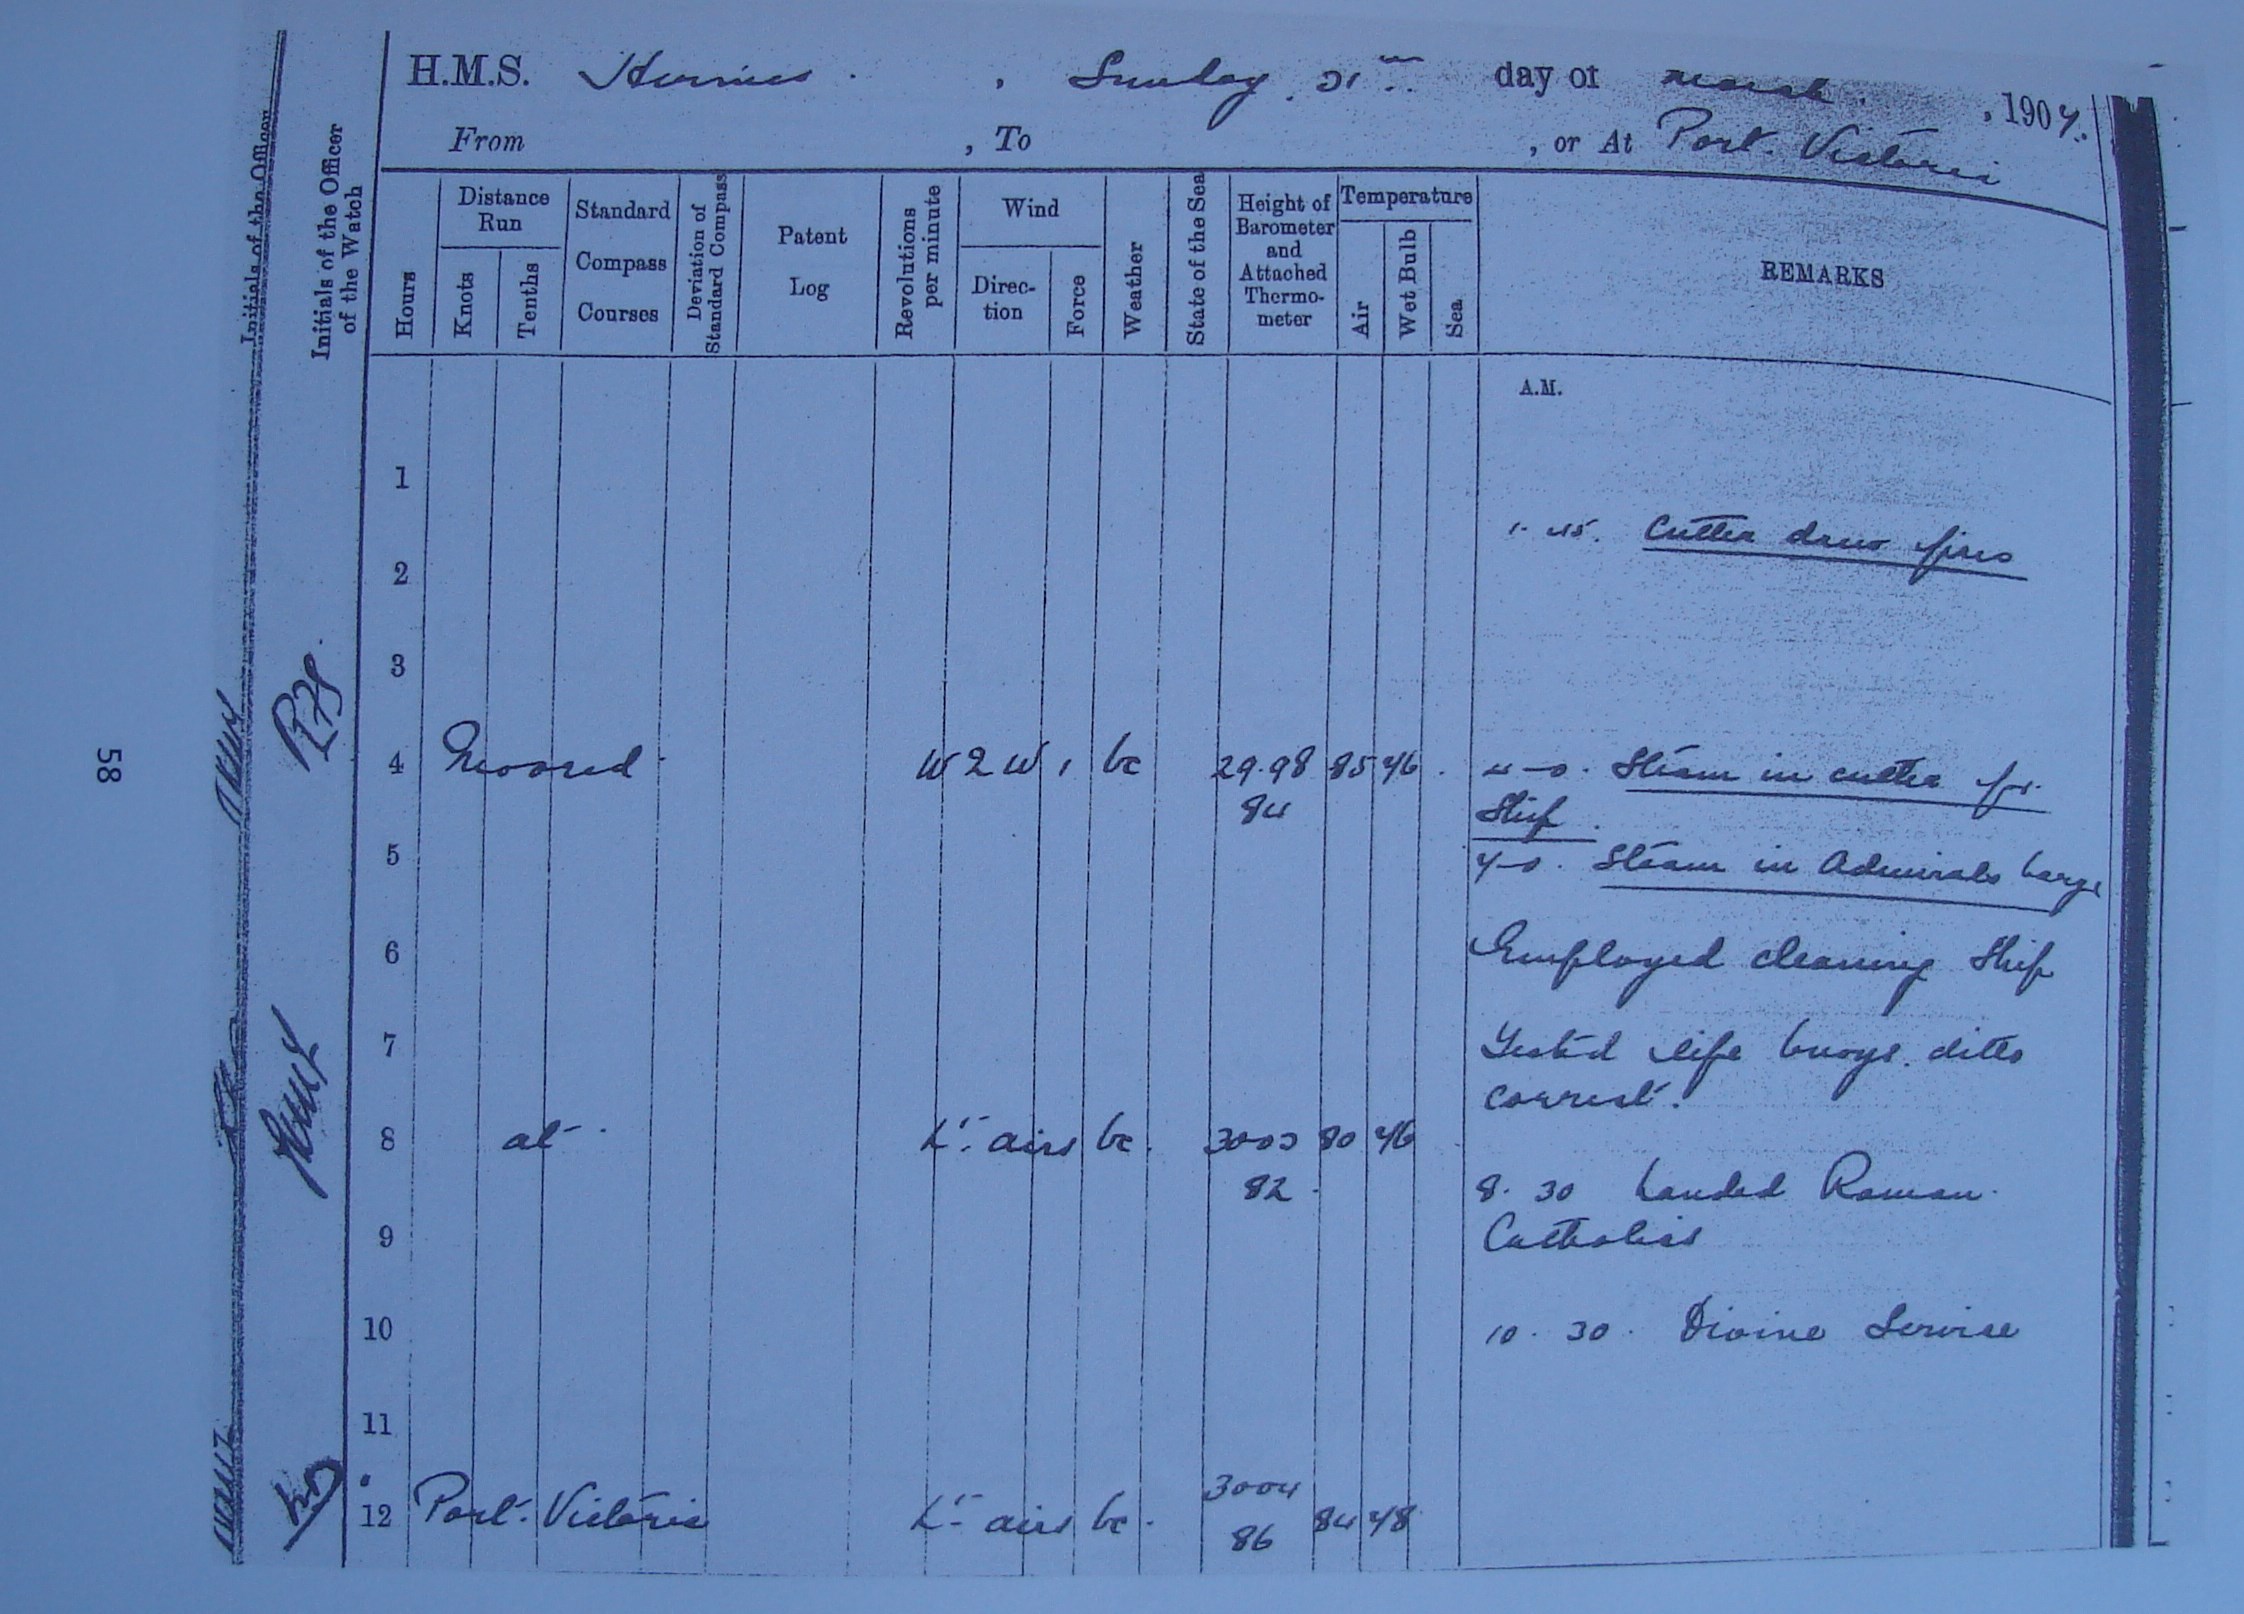 H.M.S. Hermes. , Sunday 31st day of March. , 1907.
From , To , or At Port Victoria
Initials of the Officer
Initials of the Officer of the Watch
Hours
Distance Run
Knots
Tenths
Standard Compass Courses
Deviation of Standard Compass
Patent Log
Revolutions per minute
Wind
Direc-tion
Force
Weather
State of the Sea
Height of Barometer and Attached Thermo-meter
Temperature
Air
Wet Bulb
Sea
REMARKS
A.M.
1
1.45. Cutter drew fires
2
3
4 Moored W2W 1 bc 29.98 85 76 4-0. Steam in cutter for
84 Ship.
5 7-0. Steam in Admirals barge
6 Employed cleaning Ship
7 Tested life buoys. ditto
correct.
8 at Lt airs bc 3003 80 76
82 8.30 Landed Roman
9 Catholics
10 10.30. Divine Service
11
12 Port Victoria Lt airs bc. 3004 84 78
86
58